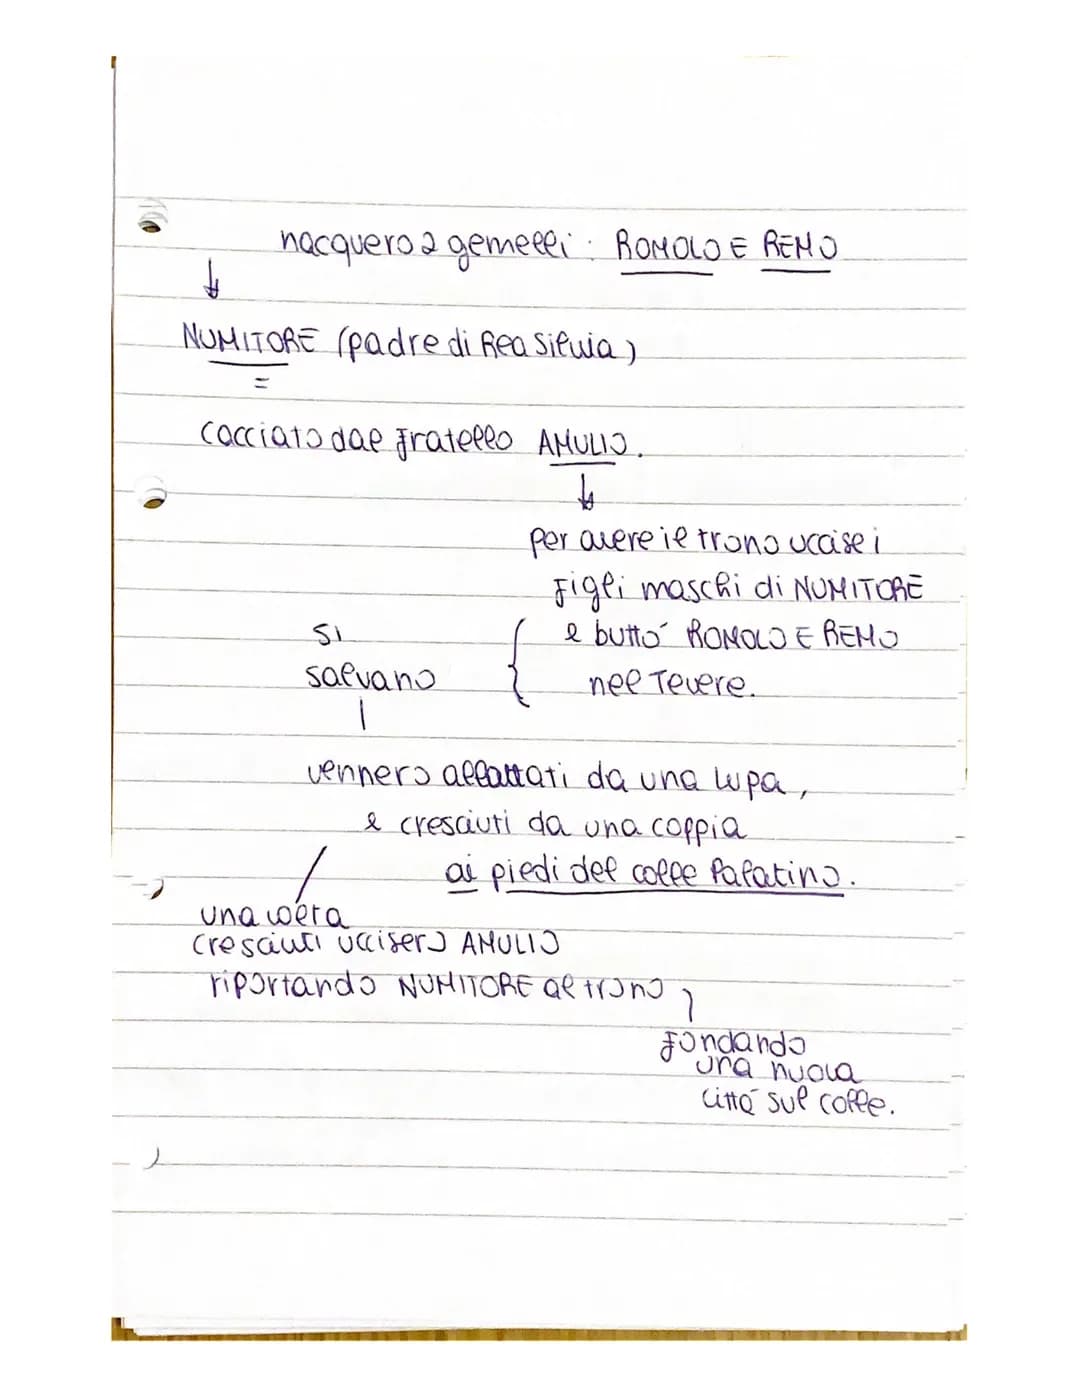 nacquero 2 gemelli : ROMOLO E REMO
NUMITORE (padre di Rea Silvia)
=
cacciato dal fratello AMULIO.
per avere il trono uccise i
figli maschi di NUMITORE
e buttò ROMOLO E REMO
nel Tevere.
si
salvano
vennero allattati da una lupa,
e cresciuti da una coppia
ai piedi del colle Palatino.
una volta
cresciuti uccisero AMULIO
riportando NUMITORE al trono
fondando
una nuova
città sul colle.